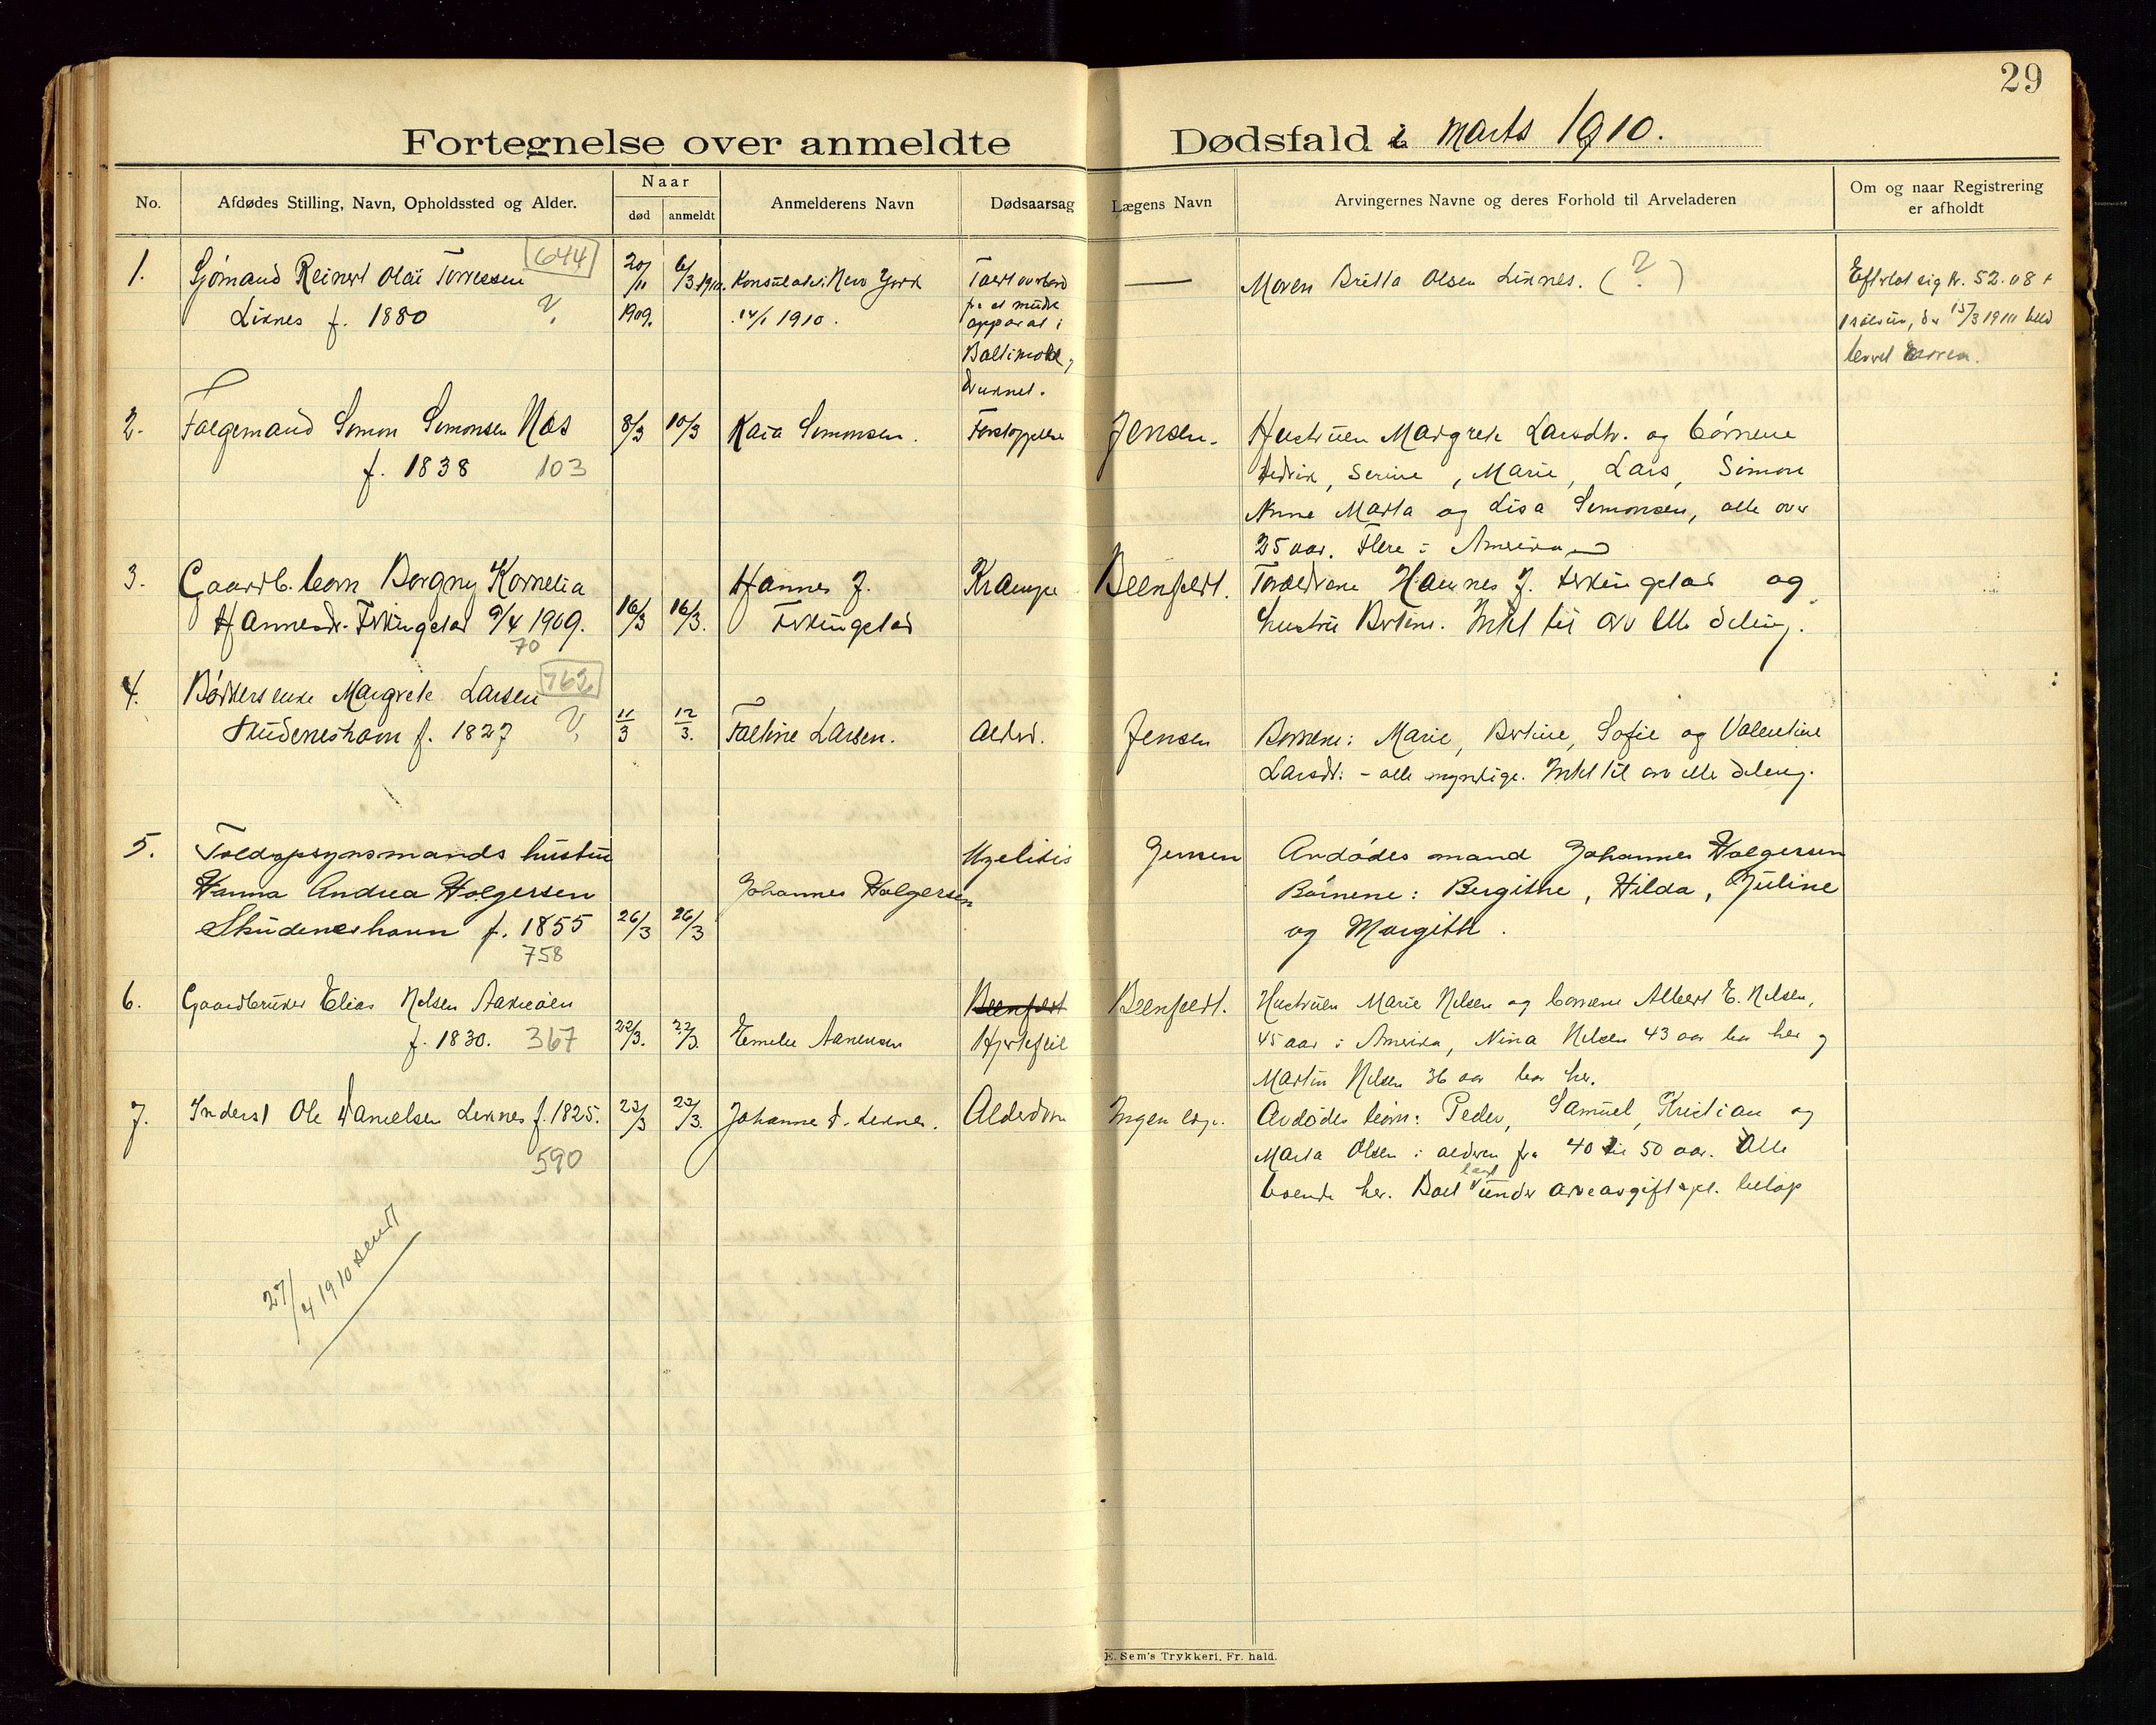 29
Fortegnelse over anmeldte Dødsfald i Marts 1910.
No.
Afdødes Stilling, Navn, Opholdssted og Alder.
Naar
død
anmeldt
Anmelderens Navn
Dødsaarsag
Lægens Navn
Arvingernes Navne og deres Forhold til Arveladeren
Om og naar Registrering
er afholdt
1.
Sjømand Reinert Olai Torressen
644
Liknes f. 1880 ?
20/11
1909.
6/3 1910.
Konsulatet i New York
14/1 1910.
apparat i
Baltimore,
druknet.
—
Moren Britta Olsen Liknes. (?)
Efterlot sig kr. 52.08 +
15/3 1910
2.
Simon Simonsen Nes
f. 1838 103
8/3
10/3
Kaia Simonsen.
Forstoppelse
Jensen.
Hustruen Margrete Larsdtr. og børnene
Fedrik, Serine, Marie, Lars, Simon
Anne Marta og Lisa Simonsen, alle over
25 aar. Flere i Amerika
3.
Gaardb. barn Borgny Kornelia
Hannesdr. Ferkingstad 9/4 1909.
70
16/3
16/3.
Hannes J.
Ferkingstad
Krampe
Beenfeldt.
Forældrene Hannes J. Ferkingstad og
hustru Bertine. Intet til arv elle deling.
4.
Bødkerenke Margrete Larsen
763
Skudeneshavn f. 1827 ?
11/3
12/3.
Faltine Larsen.
Alderd.
Jensen
Børnene: Marie, Bertine, Sofie og Valentine
Larsdt. - alle myndige. Intet til arv elle deling.
5.
Toldopsynsmands hustru
Hanna Andrea Holgersen
Skudeneshavn f. 1855
758
26/3
26/3
Johannes Holgersen
Myelitis
Jensen
Avdødes mand Johannes Holgersen
Børnene: Bergithe, Hilda, Juline
og Margith.
6.
Gaardbruker Elias Nilsen Aakreøen
f. 1830. 367
22/3.
22/3.
Emelie Aanensen
Beenfeldt
Hjertefeil
Beenfeldt.
Hustruen Marie Nilsen og børnene Albert E. Nilsen,
45 aar i Amerika, Nina Nilsen 43 aar bor her og
Martin Nilsen 36 aar bor her.
7.
Inderst Ole Danielsen Liknes f. 1825.
590
22/3
22/3.
Johanne D. Liknes.
Alderdom
Ingen læge.
Avdødes børn: Peder, Samuel, Kristian og
Marta Olsen i alderen fra 40 til 50 aar. Alle
boende her. Boet langt under arveavgiftspl. beløp
27/4 1910 sendt
E. Sem's Trykkeri, Fr. hald.